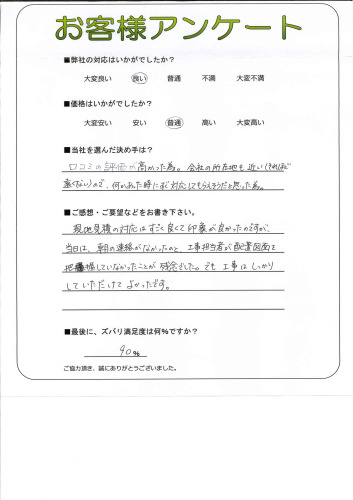 お客様アンケート
■弊社の対応はいかがでしたか？
大変良い 良い 普通 不満 大変不満
■価格はいかがでしたか？
大変安い 安い 普通 高い 大変高い
■当社を選んだ決め手は？
口コミの評価が高かった為。会社の所在地も近い(それほど
遠くない)ので、何かあった時にすぐ対応してもらえそうだと思った為。
■ご感想・ご要望などをお書き下さい。
現地見積の対応はすごく良くて印象が良かったのですが、
当日は、朝の連絡がなかったのと、工事担当者が配置図面を
把握していなかったことが残念でした。でも工事はしっかり
していただけてよかったです。
■最後に、ズバリ満足度は何%ですか？
90%
ご協力頂き、誠にありがとうございました。